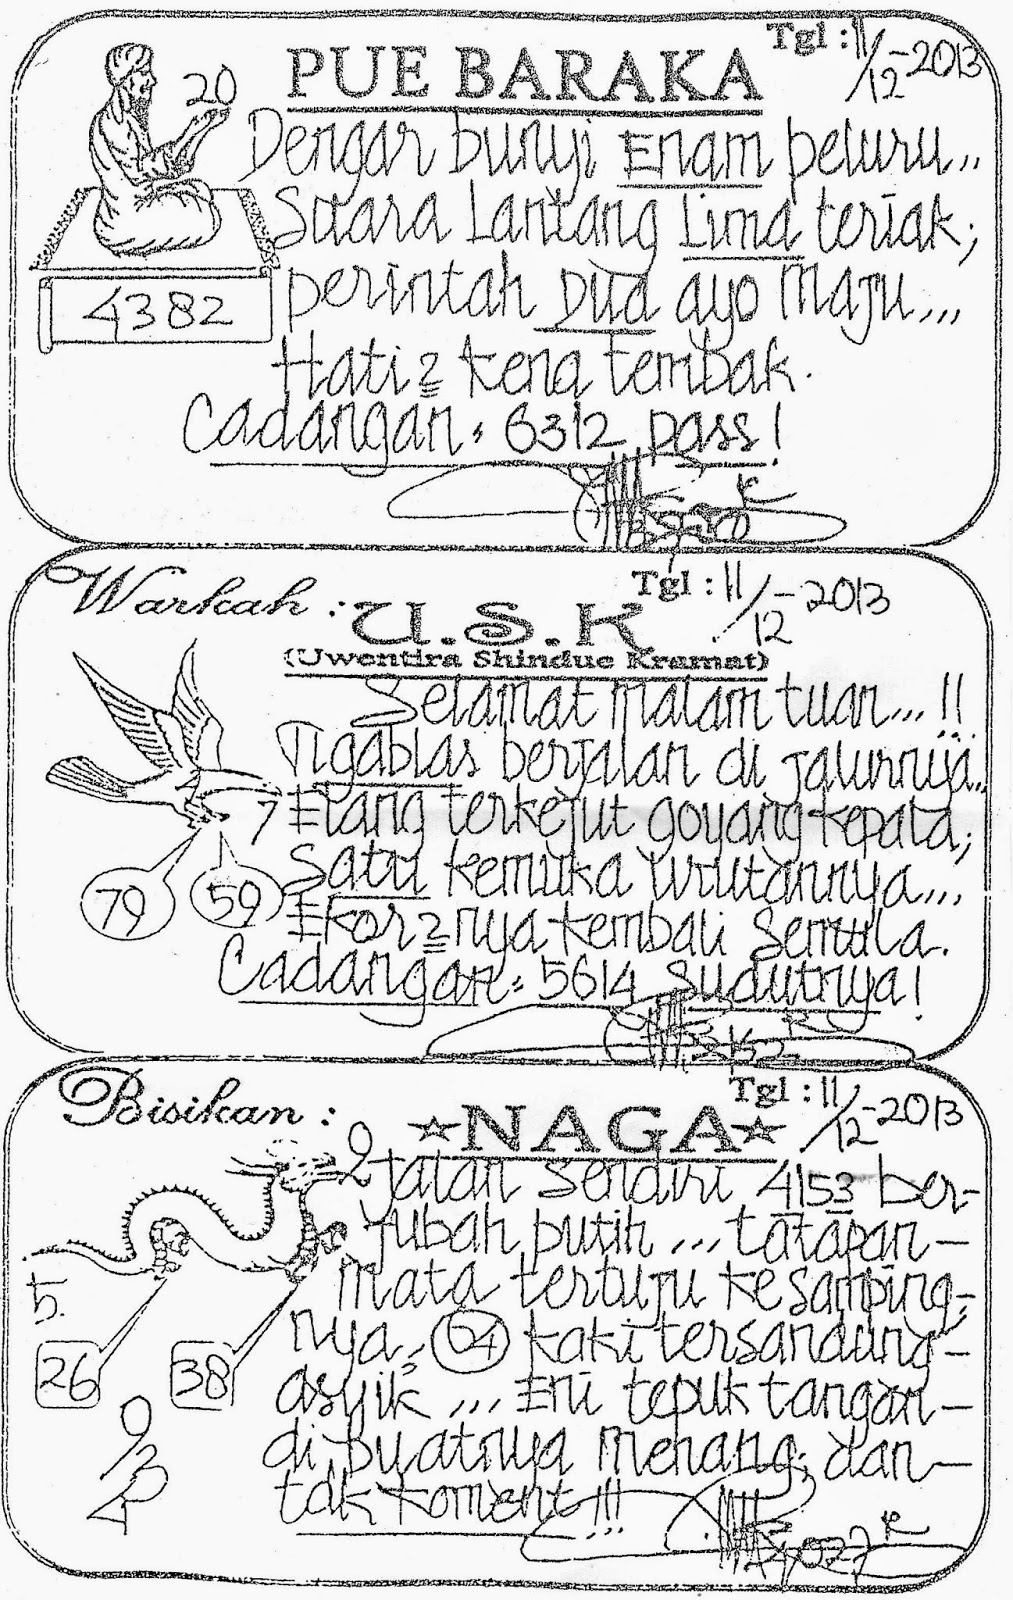 Tgl : 11/12-2013
PUE BARAKA
20
Dengar bunyi Enam peluru,,
Suara Lantang Lima teriak;
4382
perintah Dua ayo Maju...
Hati2 kena tembak.
Cadangan = 6312 pass!
Warkah :
Tgl : 11/12-2013
U.S.K
(Uwentira Shindue Kramat)
Selamat malam tuan...!!
Tigablas berjalan di jalurnya..
7
Elang terkejut goyang kepala;
79
59
Satu kemuka urutannya...
Ekor2nya kembali semula.
Cadangan = 5614 Sudutnya!
Bisikan :
Tgl : 11/12-2013
☆NAGA☆
2
Jalan Sendiri 4153 ber-
jubah putih ... tatapan-
5.
mata tertuju ke samping-
nya, 64 kaki tersandung-
26
38
asyik ,,, Eni tepuk tangan-
di buatnya menang; dan-
tak koment!!!
4